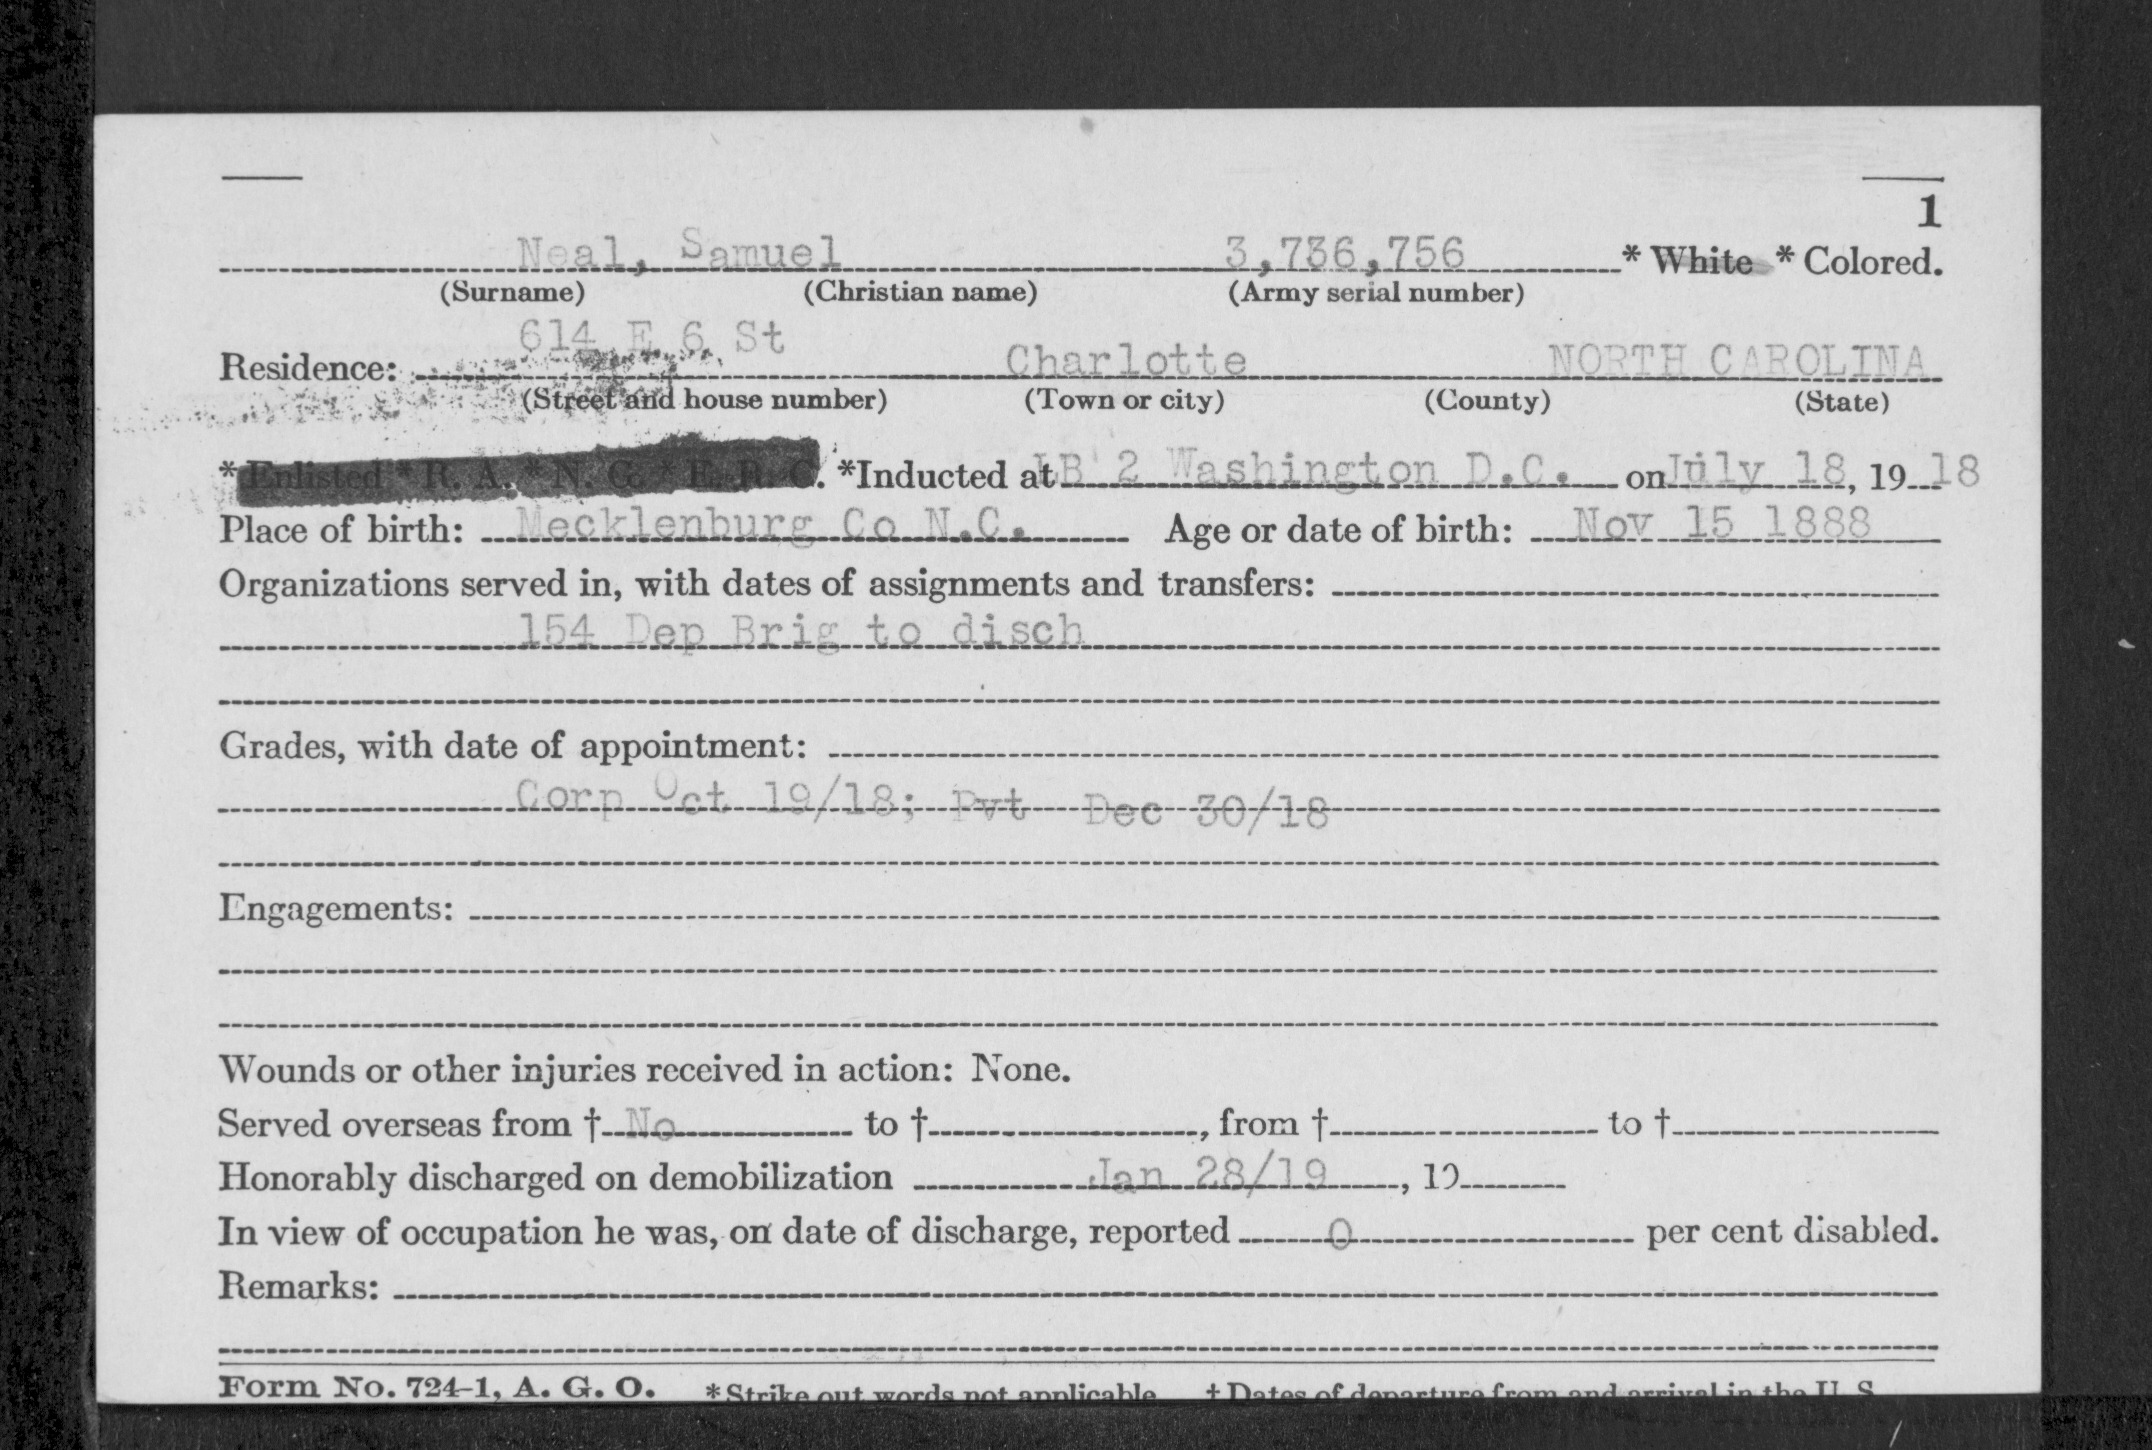 1
Neal, Samuel 3,736,756 * White * Colored.
(Surname) (Christian name) (Army serial number)
614 E 6 St
Residence: Charlotte NORTH CAROLINA
(Street and house number) (Town or city) (County) (State)
* Enlisted * R. A. * N. G. * E. R. C. *Inducted at LB 2 Washington D.C. on July 18, 19 18
Place of birth: Mecklenburg Co N.C. Age or date of birth: Nov 15 1888
Organizations served in, with dates of assignments and transfers:
154 Dep Brig to disch
Grades, with date of appointment:
Corp Oct 19/18; Pvt Dec 30/18
Engagements:
Wounds or other injuries received in action: None.
Served overseas from † No to †, from † to †
Honorably discharged on demobilization Jan 28/19, 19
In view of occupation he was, on date of discharge, reported 0 per cent disabled.
Remarks:
Form No. 724-1, A. G. O. *Strike out words not applicable † Dates of departure from and arrival in the U. S.